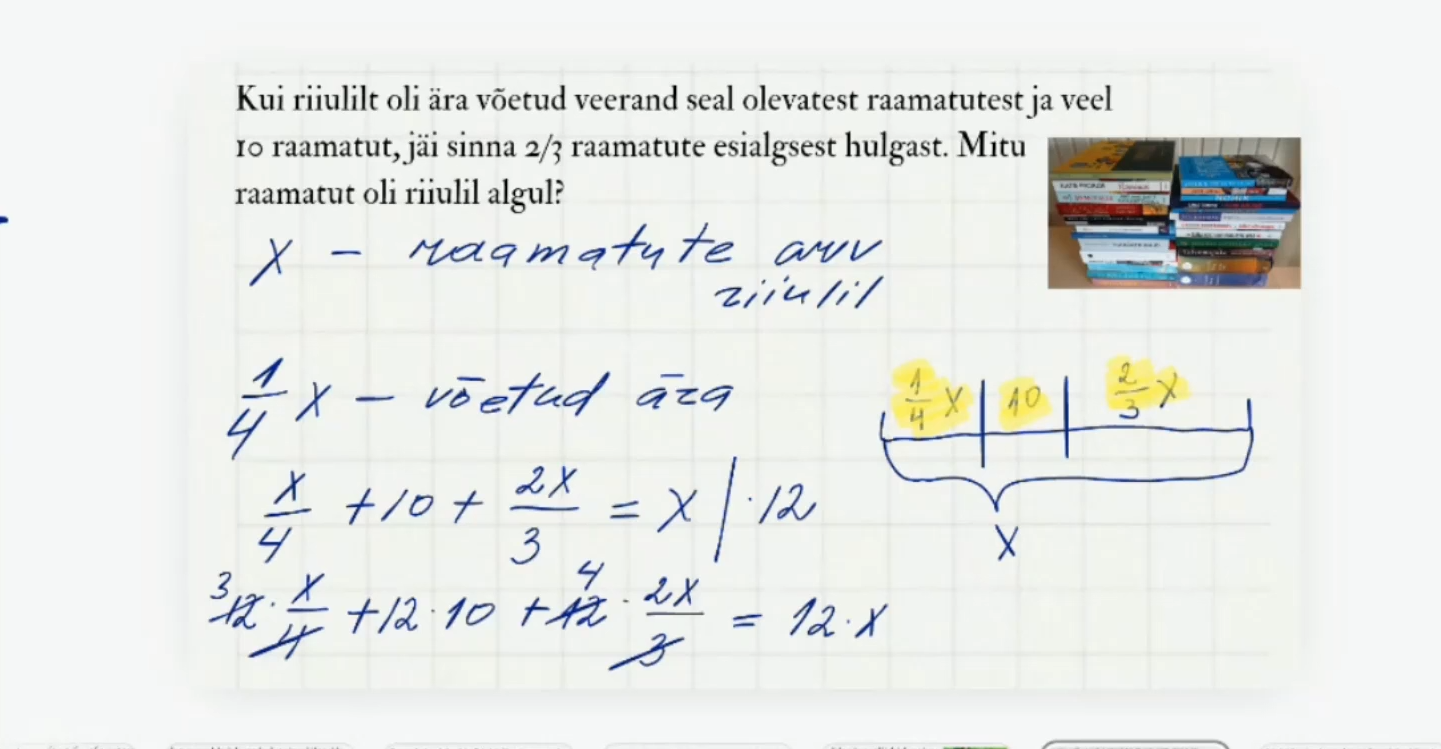 Kui riiulilt oli ära võetud veerand seal olevatest raamatutest ja veel
10 raamatut, jäi sinna 2/3 raamatute esialgsest hulgast. Mitu
raamatut oli riiulil algul?
x – raamatute arv
riiulil
1/4 x – võetud ära
1/4 x | 10 | 2/3 x
x
x/4 + 10 + 2x/3 = x | · 12
3 12 · x/4 + 12 · 10 + 4 12 · 2x/3 = 12 · x